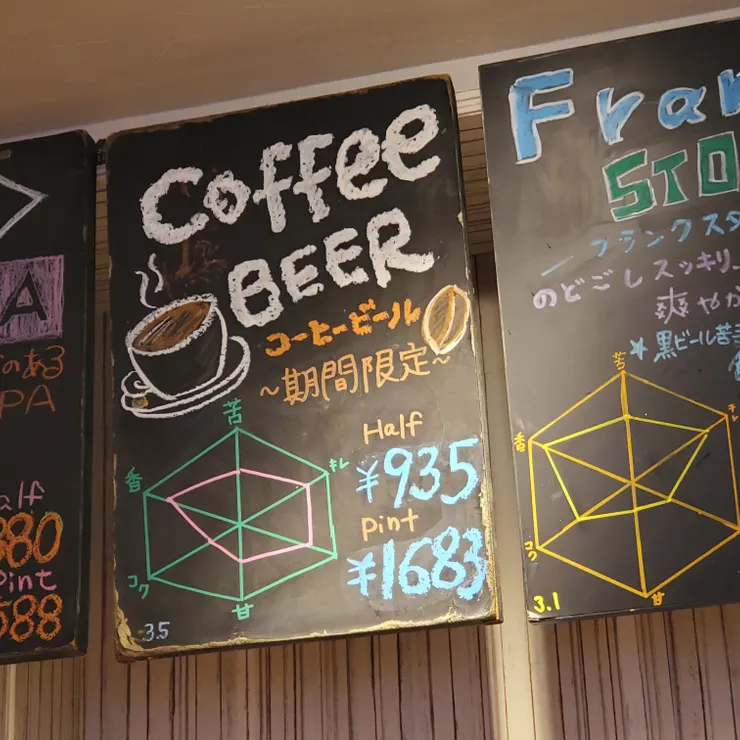 A
のある
PA
alf
880
Pint
588
Coffee
BEER
コーヒービール
~期間限定~
苦
香
キレ
コク
甘
Half
¥935
Pint
¥1683
3.5
Fran
STO
フランクスタ
のどごしスッキリ、
爽やか
*黒ビール苦手
苦
香
キレ
コク
甘
3.1